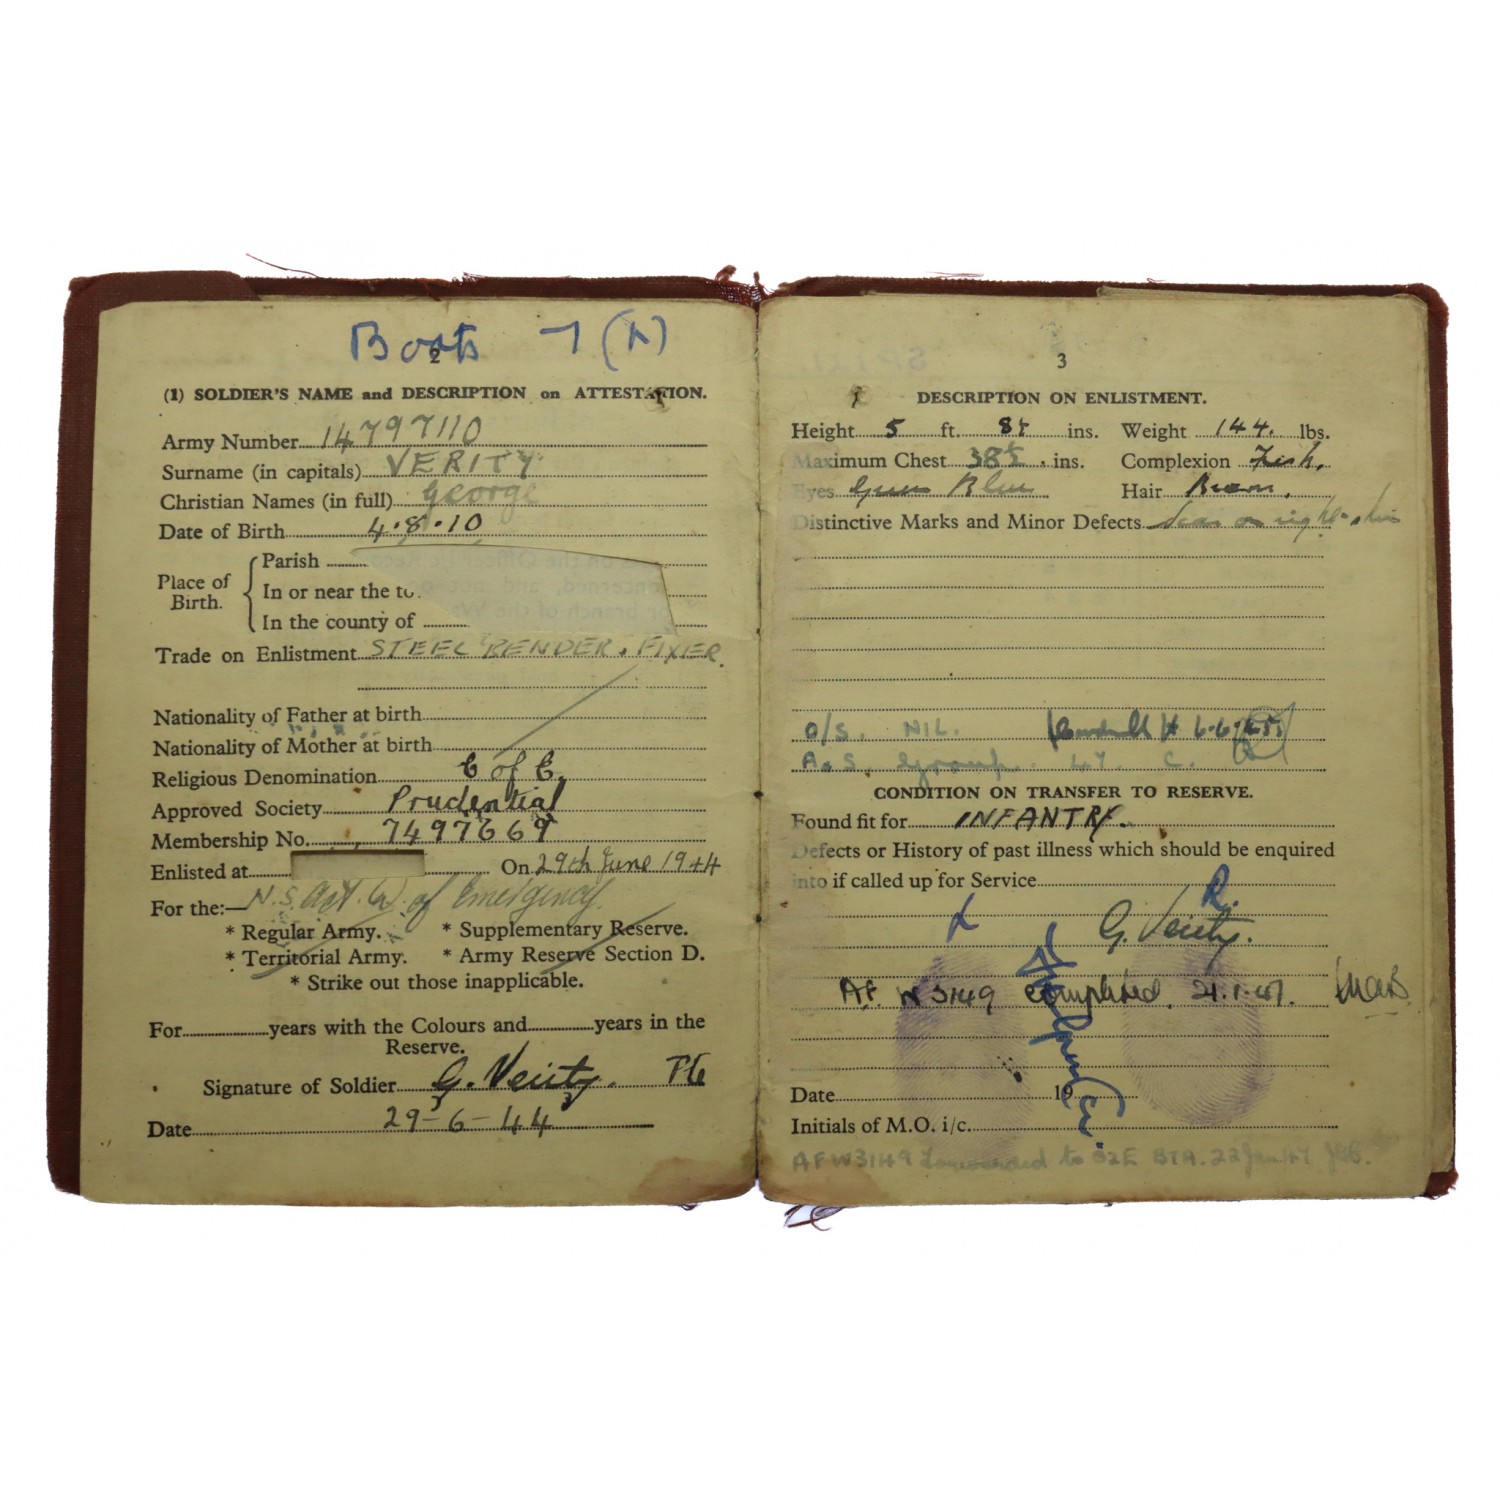 Boots 7 (L)
2
(1) SOLDIER'S NAME and DESCRIPTION on ATTESTATION.
Army Number 14797110
Surname (in capitals) VERITY
Christian Names (in full) George
Date of Birth 4.8.10
Place of Birth.
Parish
In or near the to
In the county of
Trade on Enlistment STEEL BENDER. FIXER.
Nationality of Father at birth
Nationality of Mother at birth
Religious Denomination C of E.
Approved Society Prudential
Membership No. 7497669
Enlisted at On 29th June 1944
For the:— N.S. Act. of Emergency.
* Regular Army. * Supplementary Reserve.
* Territorial Army. * Army Reserve Section D.
* Strike out those inapplicable.
For years with the Colours and years in the
Reserve.
Signature of Soldier G. Verity. PG
Date 29-6-44
3
DESCRIPTION ON ENLISTMENT.
Height 5 ft. 8½ ins. Weight 144. lbs.
Maximum Chest 38½ ins. Complexion Fresh.
Eyes Blue Hair Brown.
Distinctive Marks and Minor Defects Scar on right shin
O/S. NIL.
A & S. Group. 27. C.
CONDITION ON TRANSFER TO RESERVE.
Found fit for INFANTRY.
Defects or History of past illness which should be enquired
into if called up for Service
L R.
G. Verity.
AF W3149 Completed. 21.1.47.
Date 19
Initials of M.O. i/c.
AFW3149 forwarded to 22 Jan 47